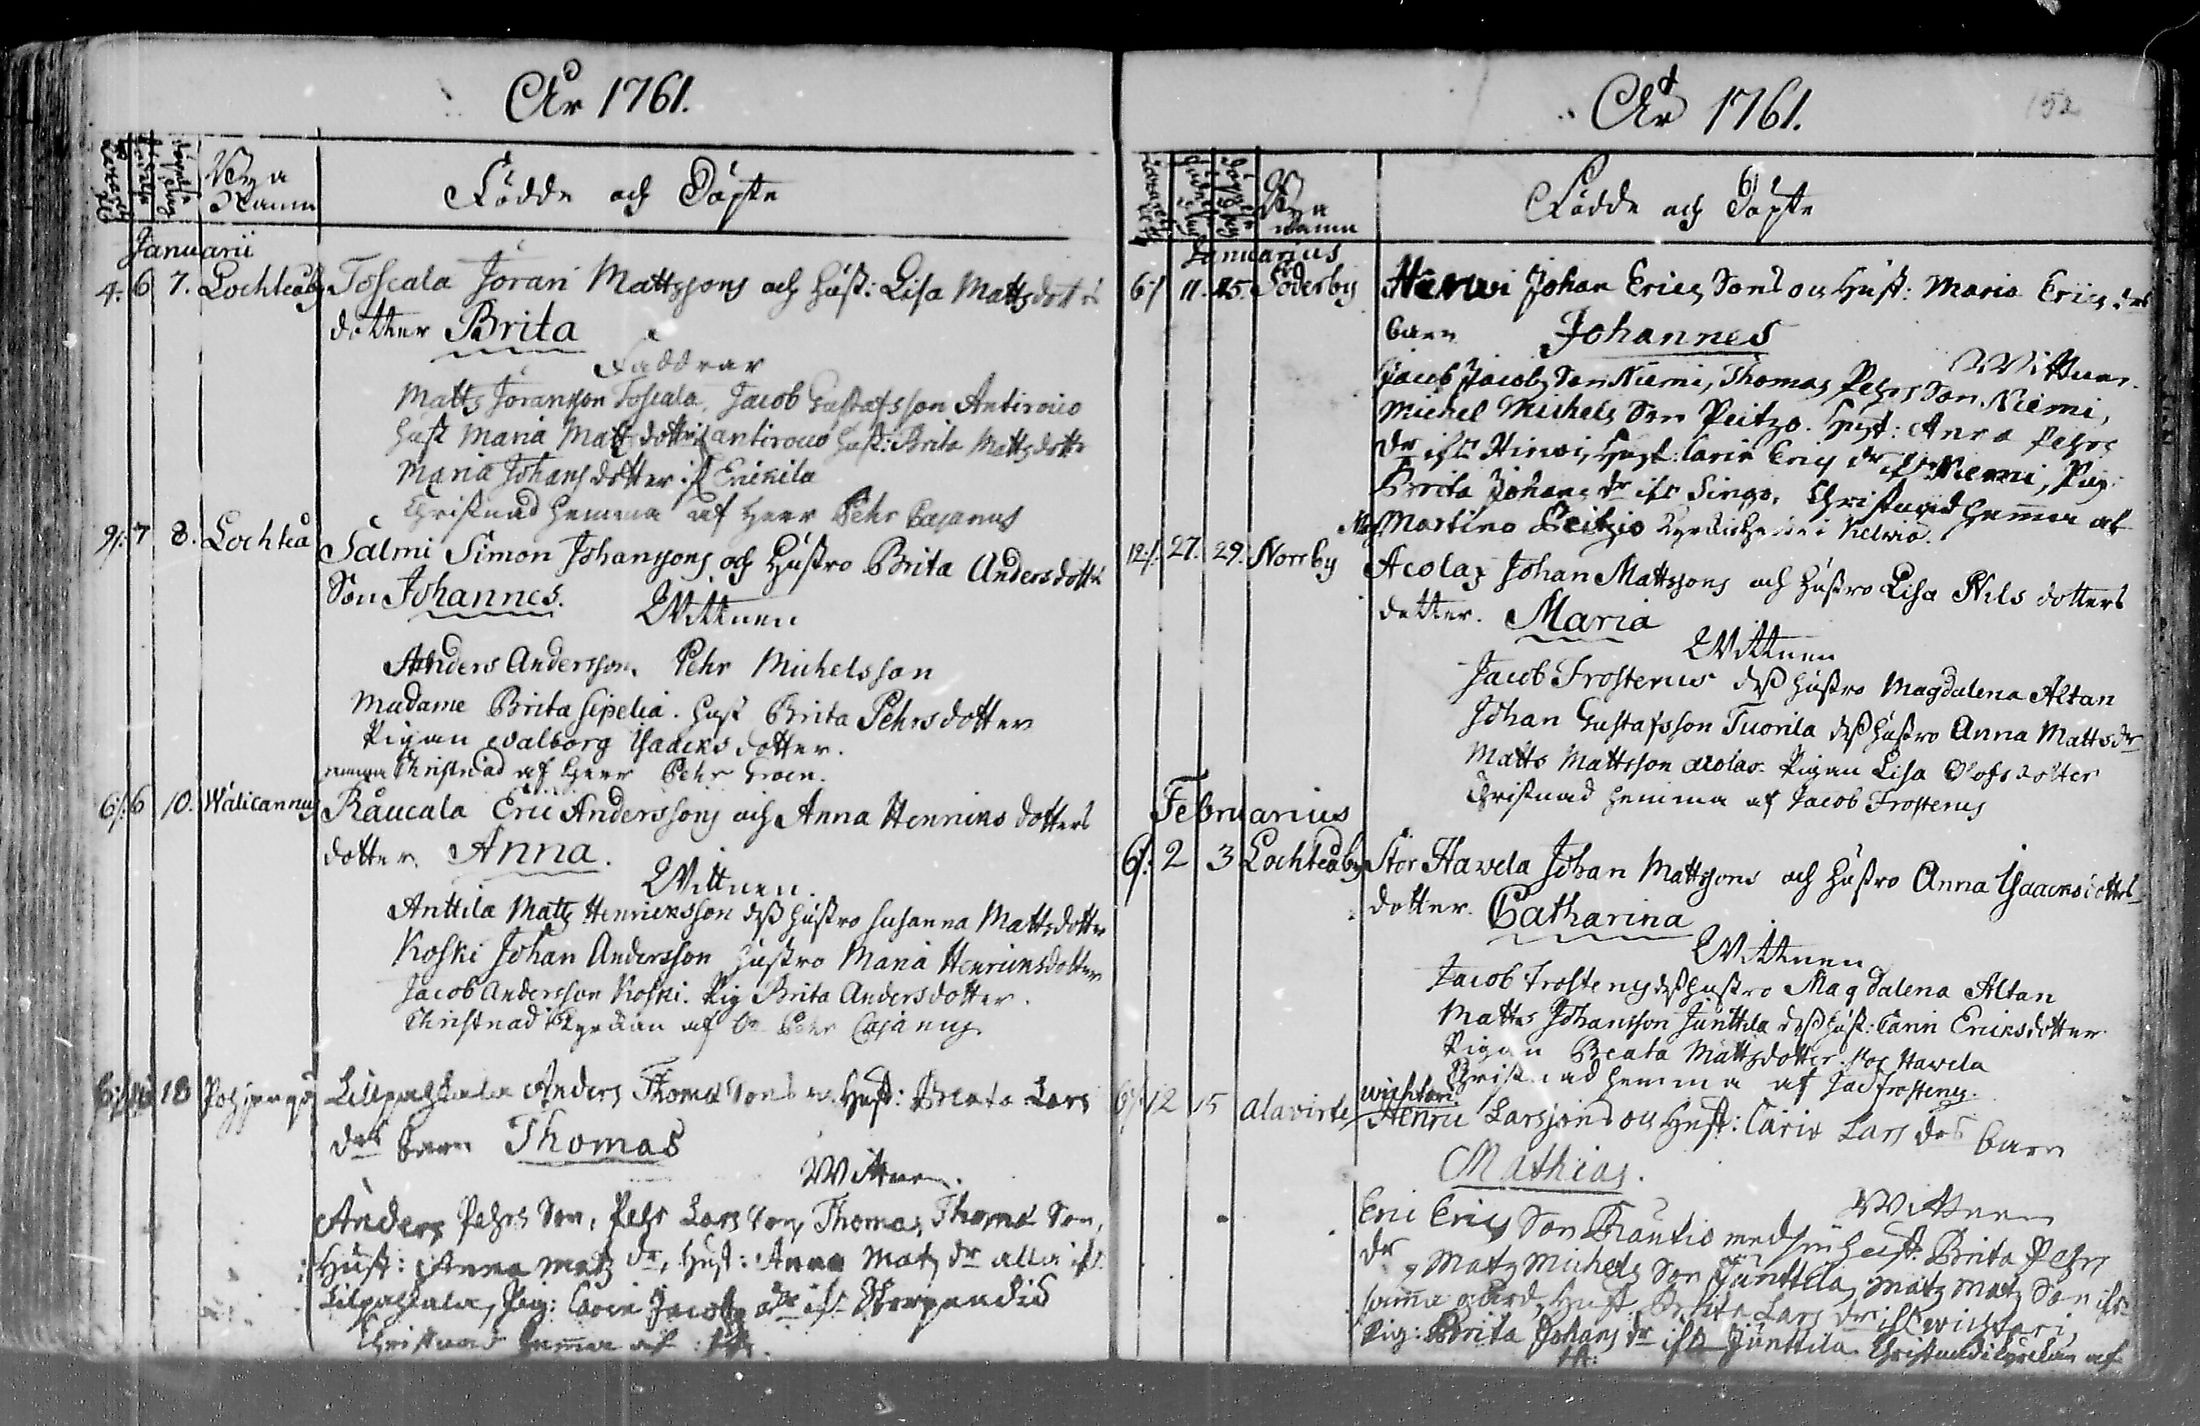 År 1761.
Bya Namn
Födde och Döpte
Januarii
4. 6 7. Lochteåby Toscala Jöran Mattssons och Hust: Lisa Mattsdotters
dotter Brita
Faddrar
Matts Jöransson Toscala, Jacob Gustafsson Antirouo
Hust Maria Mattsdotter antirouo Hust: Brita Mattsdotter
Maria Johansdotter Erickila
Christnad hemma af Herr Pehr Cajanus
9/. 7 8. Lochteå Salmi Simon Johanssons och Hustro Brita Andersdotters
Son Johannes.
Wittnen
Anders Andersson. Pehr Michelsson
Madame Brita Sipelia. Hust Brita Pehrsdotter
Pigan Walborg Isaacksdotter.
Christnad af Herr Pehr
6/. 6 10. Wälicannus Råucala Eric Anderssons och Anna Henricks dotters
dotter. Anna.
Wittnen.
Anttila Matts Henricksson dess Hustro Susanna Mattsdotter
Koski Johan Andersson Hustro Maria Henricksdotter
Jacob Andersson Koski. Pig Brita Andersdotter.
Christnad i Kyrckan af Pehr Cajanus
13 Lillpathala Anders Thomæ Sons Hust: Beata Lars
drs barn Thomas
Wittnen.
Anders Pehrs Son, Pehr Lars Son, Thomas Thomæ Son,
Hust: Anna Matz dr, Hust: Anna Matz dr alla
Pig: Carin Jacobs dr
Christnad hemma af
År 1761.
152
Bya namn
Födde och Döpte
Januarius
6/ 11. 15. Söderby Hirwi Johan Erics Sons Hust: Maria Erics drs
barn Johannes
Wittnen.
Jacob Jacobs Son Niemi, Thomas Pehrs Son Niemi,
Michel Michels Son Peitzo. Hust: Anna Pehrs
dr Hirwi, Hust: Carin Erics dr Niemi, Pig:
Brita Johans dr Singo, Christnad hemma af
Mag Martino Peitzio i Kelwio.
12/. 27. 29. Norrby Acolax Johan Mattssons och Hustro Lisa Nils dotters
dotter. Maria
Wittnen
Jacob Frosterus dess Hustro Magdalena Altan
Johan Gustafsson Tuorila dess Hustro Anna Mattsdr
Matts Mattsson Acolax. Pigan Lisa Olofsdotter
Christnad hemma af Jacob Frosterus
Februarius
6/. 2 3 Lochteåby Stor Hawela Johan Mattssons och Hustro Anna Isaacksdotters
dotter. Catharina
Wittnen
Jacob Frosterus dess Hustro Magdalena Altan
Matts Johansson Junttila dess Hust: Carin Ericksdotter
Pigan Beata Mattsdotter Hawela
Christnad hemma af Jac Frosterus.
6/. 12 15 Alavirte Wichtari
Henric Larssons Hust: Carin Lars drs barn
Mathias.
Wittnen
Eric Erics Son Rautio med sin Hust. Brita Pehrs
dr, Matz Michels Son Junttila, Matz Matz Son
samma gård, Hust. Brita Lars dr Wichtari,
Pig: Brita Johans dr Junttila. Christnad i Kyrckan af